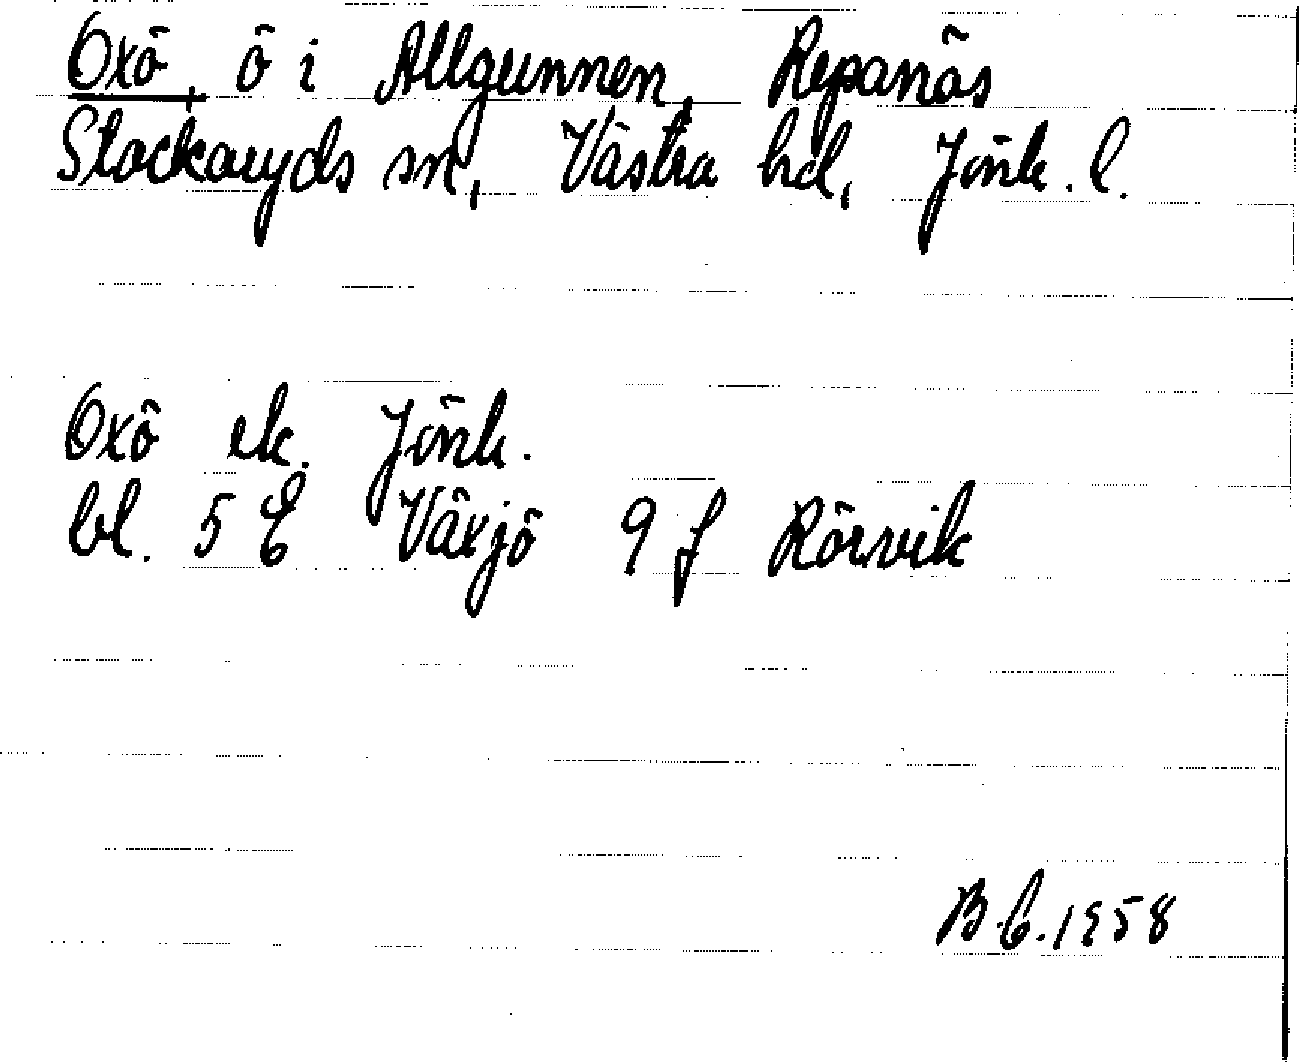 Oxö, ö i Allgunnen, Repanäs
Stockaryds sn, Västra hd, Jönk. l.
Oxö ek. Jönk.
bl. 5 E Växjö 9 f Rörvik
B.E. 1958